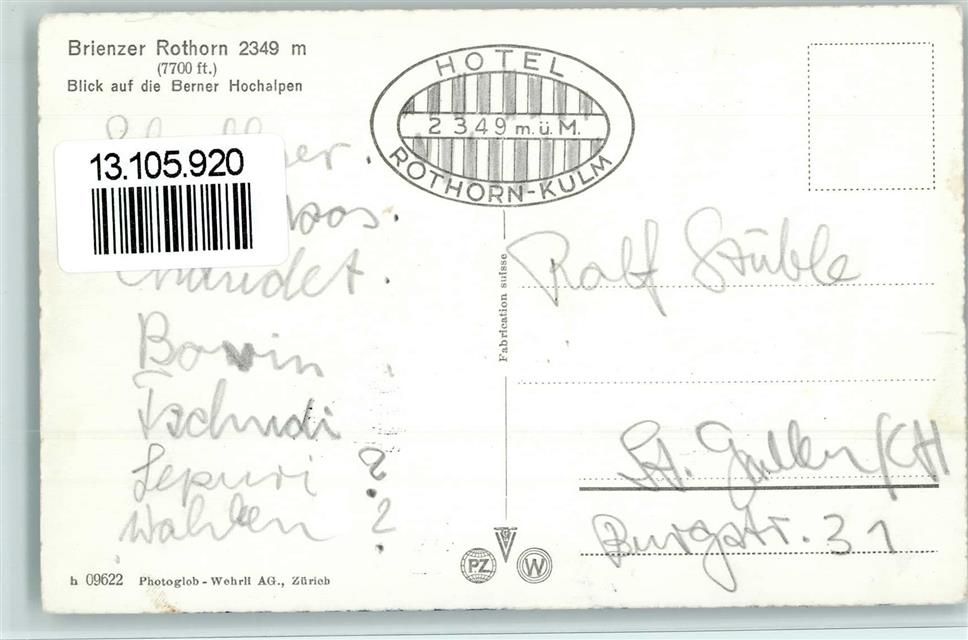 Brienzer Rothorn 2349 m
(7700 ft.)
Blick auf die Berner Hochalpen
HOTEL
2349 m. ü. M.
ROTHORN-KULM
13.105.920
Bowin
Tschudi
Sepuri ?
Wahlen ?
Fabrication suisse
Ralf Stüble
St. Gallen/CH
Burgstr. 31
PZ
W
h 09622 Photoglob-Wehrli AG., Zürich